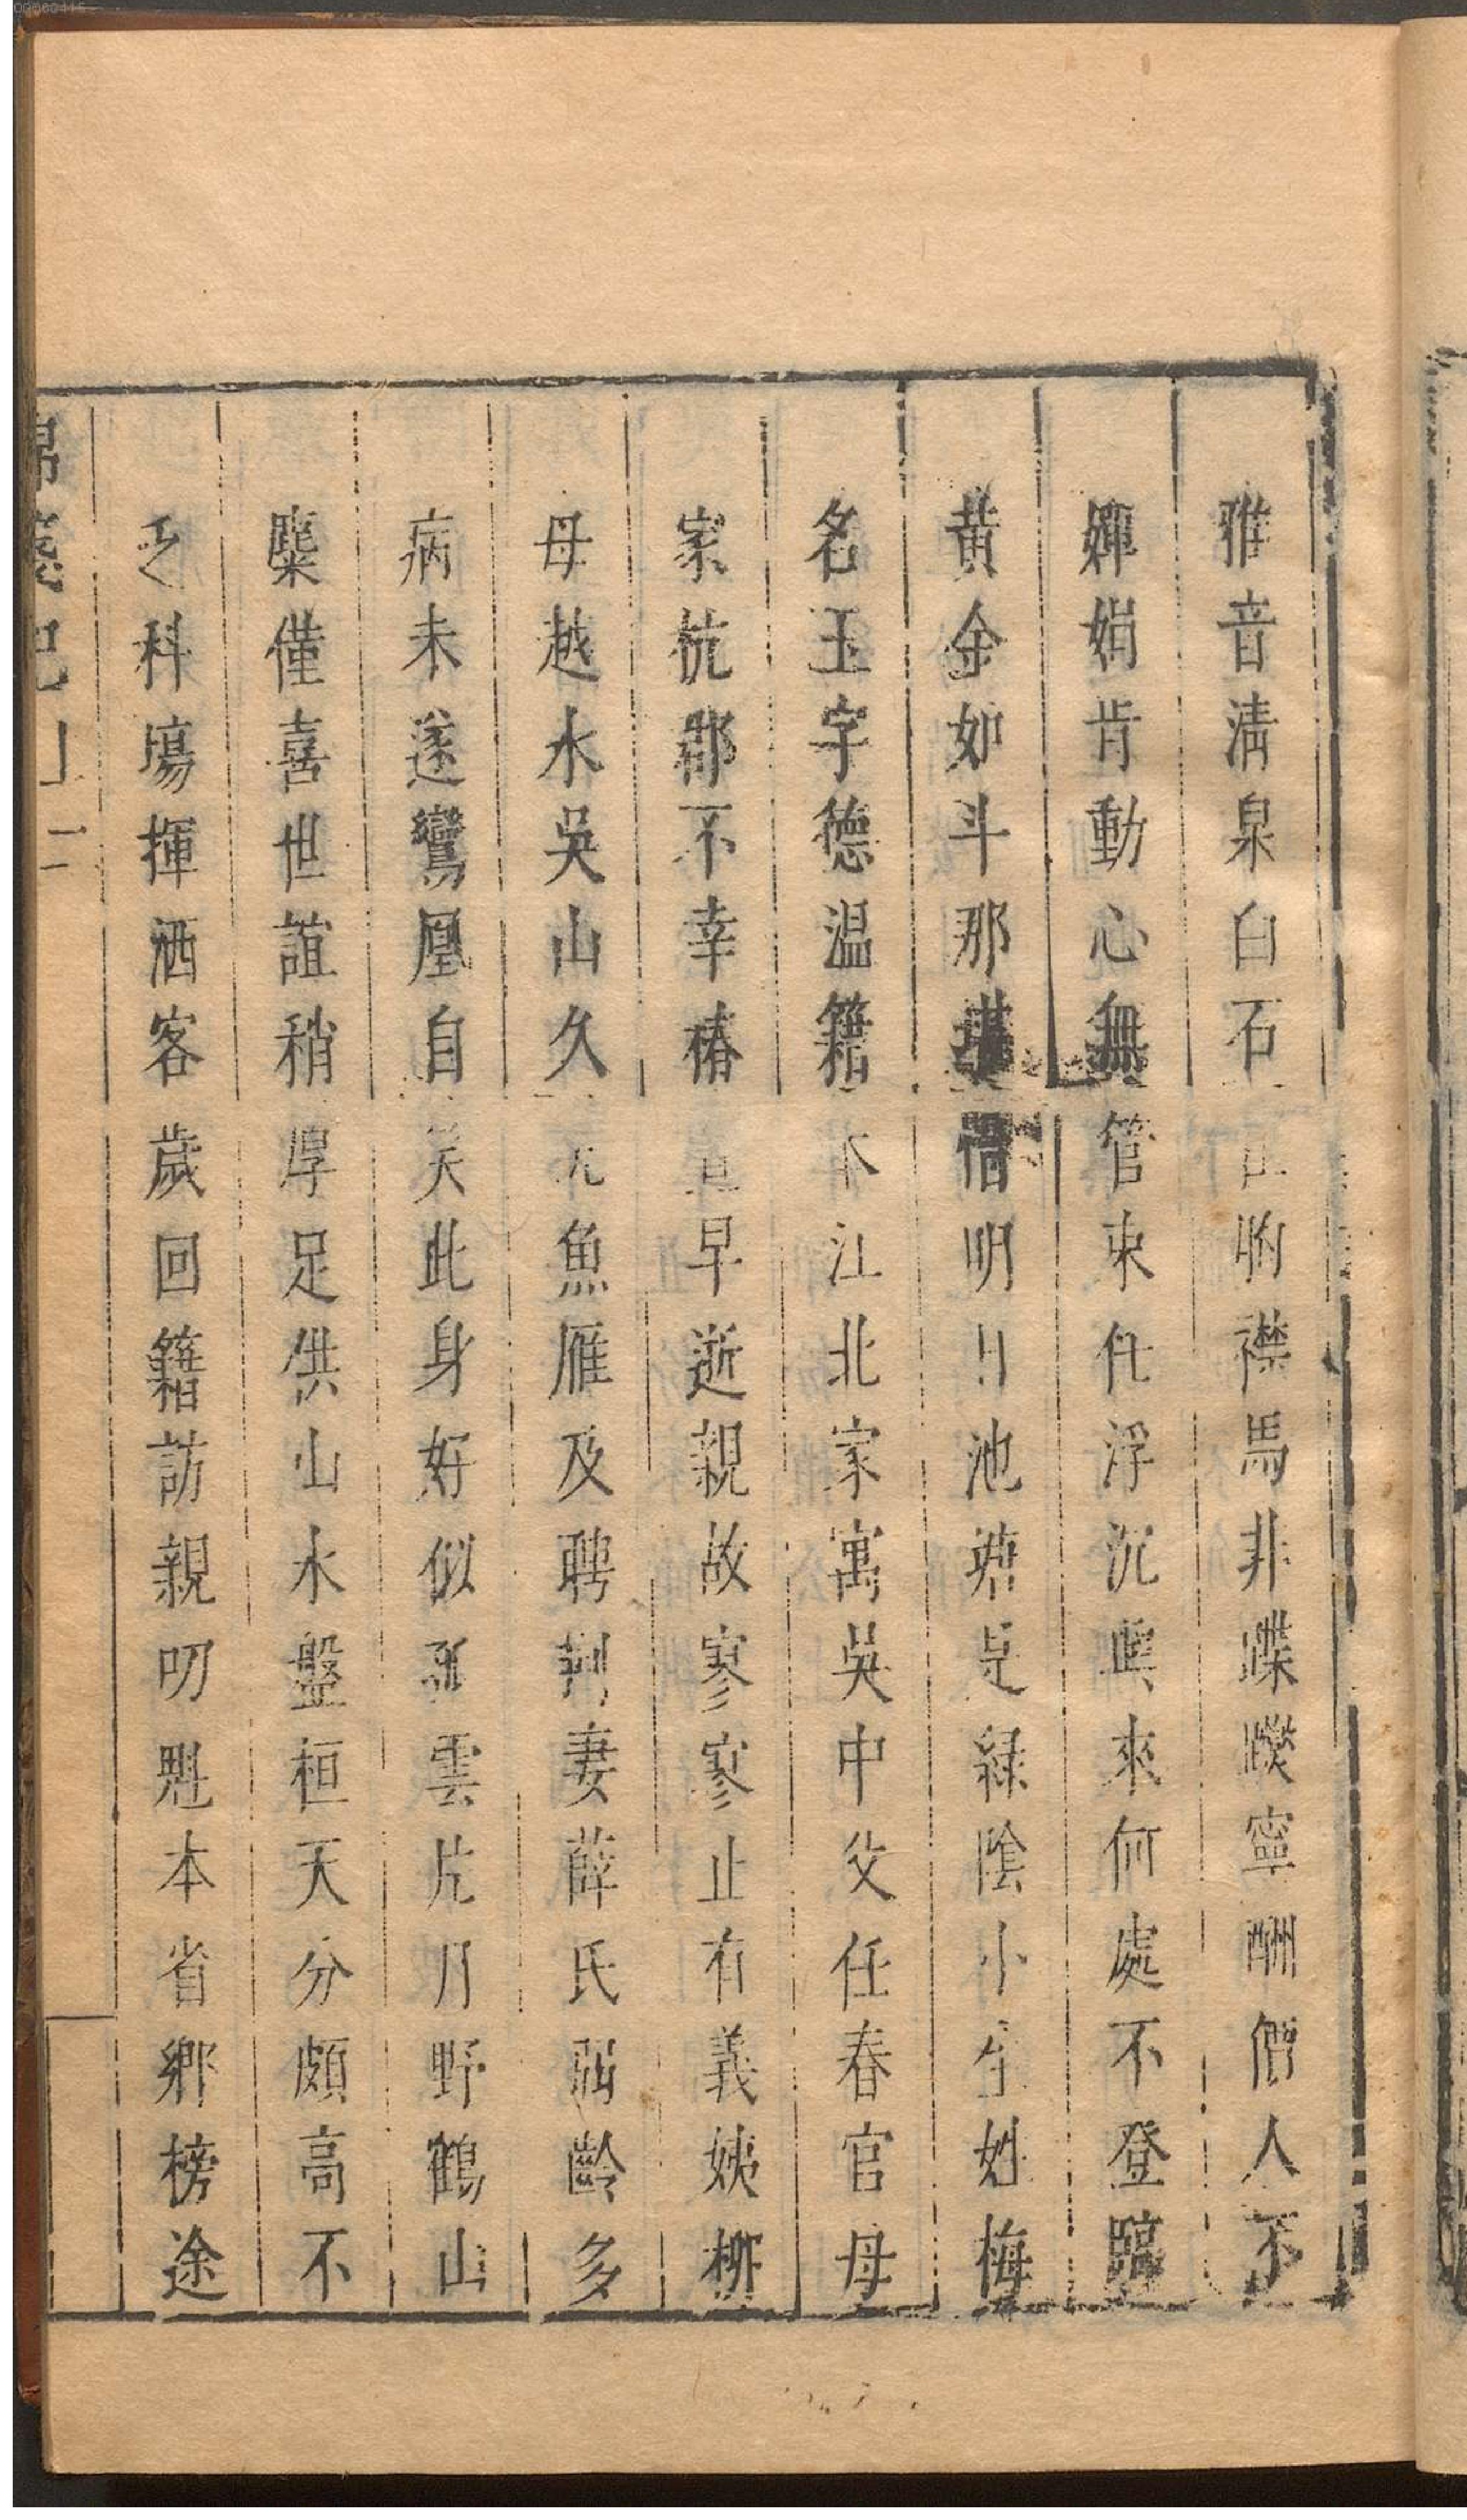 雅音清泉白石襟馬非蹀躞寧酬僧人不
嬋娟肯動心無管束任浮沉興來何處不登臨
黃金如斗那堪惜明日池塘是綠陰小生姓梅
名玉字德温籍本江北家寓吳中父任春官母
家杭郡不幸椿萱早逝親故寥寥止有義姨柳
母越水吳山久无魚雁及聘荆妻薛氏弱齡多
病未遂鸞凰自笑此身好似孤雲片月野鶴山
麋僅喜世誼稍厚足供山水盤桓天分頗高不
乏科塲揮洒客歲回籍訪親叨魁本省鄉榜途
錦箋記上 二